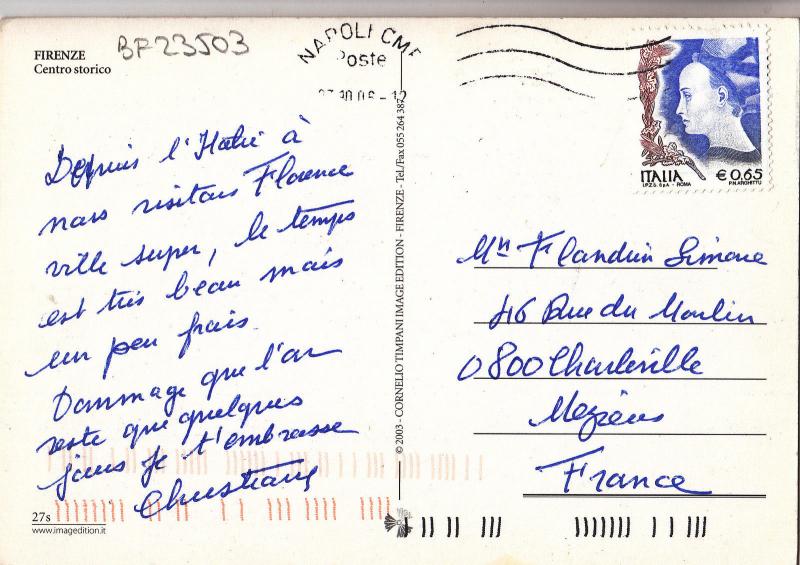 FIRENZE
Centro storico
BF23503
NAPOLI CMP
Poste
ITALIA € 0,65
I.P.Z.S. SpA - ROMA P.N. ARGHITTU
Depuis l'Italie à
nous visitons Florence
ville super, le temps
est très beau mais
un peu frais
Dommage que l'on
reste que quelques
jours Je t'embrasse
Christiane
© 2003 - CORNELIO TIMPANI IMAGE EDITION - FIRENZE - Tel./Fax 055 264 387
Flandrin Simone
46 Rue du Moulin
0800 Charleville
Mezières
France
27s
www.imagedition.it